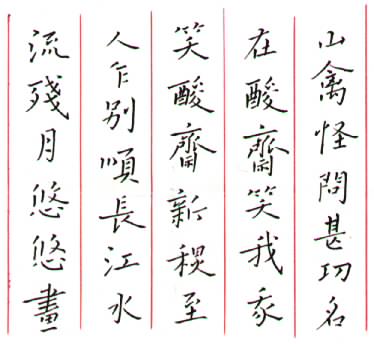 山禽怪問甚功名
在酸齋笑我我
笑酸齋新秋至
人乍別順長江水
流殘月悠悠畫